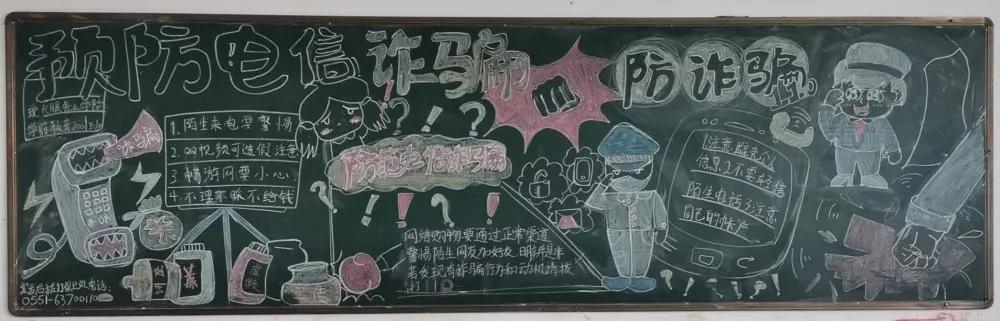 预防电信诈骗
防诈骗
现代服务学院
学前教育2001班
诈骗
1.陌生来电要警惕
2.QQ视频可造假注意
3.畅游网要小心
4.不理不睬不给钱
防范电信诈骗
诈
网络购物要通过正常渠道
警惕陌生网友加好友,明辨是非
若发现有诈骗行为和动机请拨
打110
注意避免
信息2不要轻信
陌生电话3注意
自己的帐户
0551-63700110